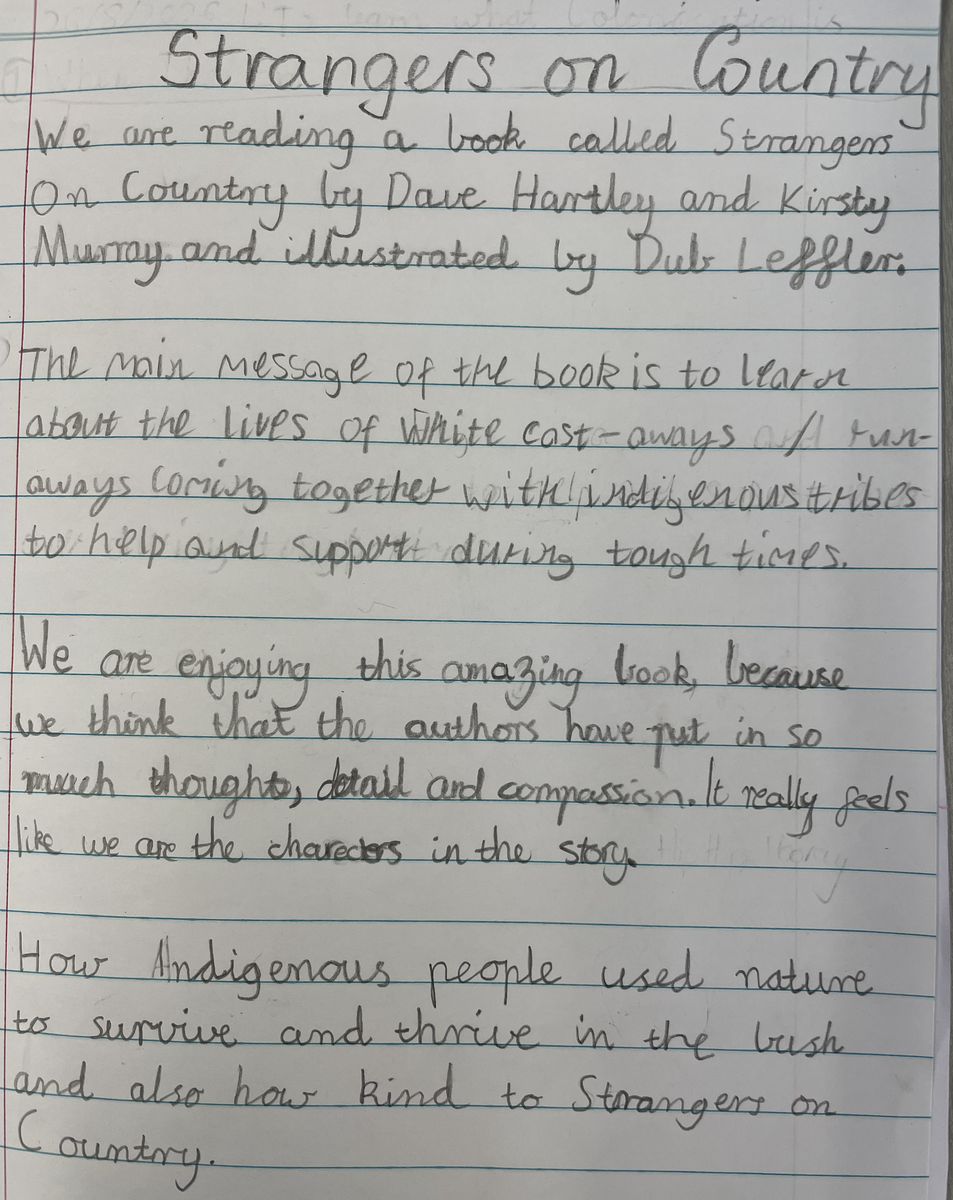 Strangers on Country
We are reading a book called Strangers
On Country by Dave Hartley and Kirsty
Murray and illustrated by Dub Leffler.
The main message of the book is to learn
about the lives of White cast-aways / run-
aways coming together with indigenous tribes
to help and support during tough times.
We are enjoying this amazing book, because
we think that the authors have put in so
much thought, detail and compassion. It really feels
like we are the charecters in the story.
How Indigenous people used nature
to survive and thrive in the bush
and also how kind to Strangers on
Country.